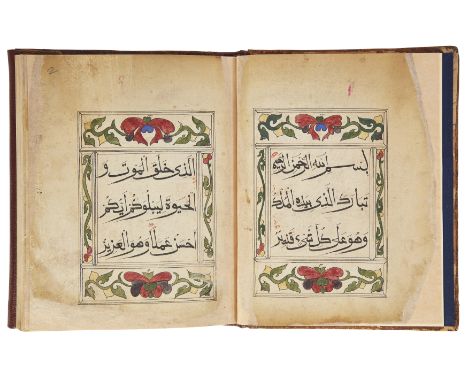 بسم الله الرحمن الرحيم
تبارك الذي بيده الملك
وهو على كل شيء قدير
الذي خلق الموت و
الحيوة ليبلوكم ايكم
احسن عملا وهو العزيز